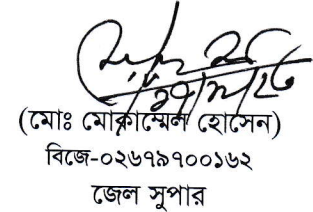 (মোঃ মোকাম্মেল হোসেন)
বিজে-০২৬৭৯৭০০১৬২
জেল সুপার